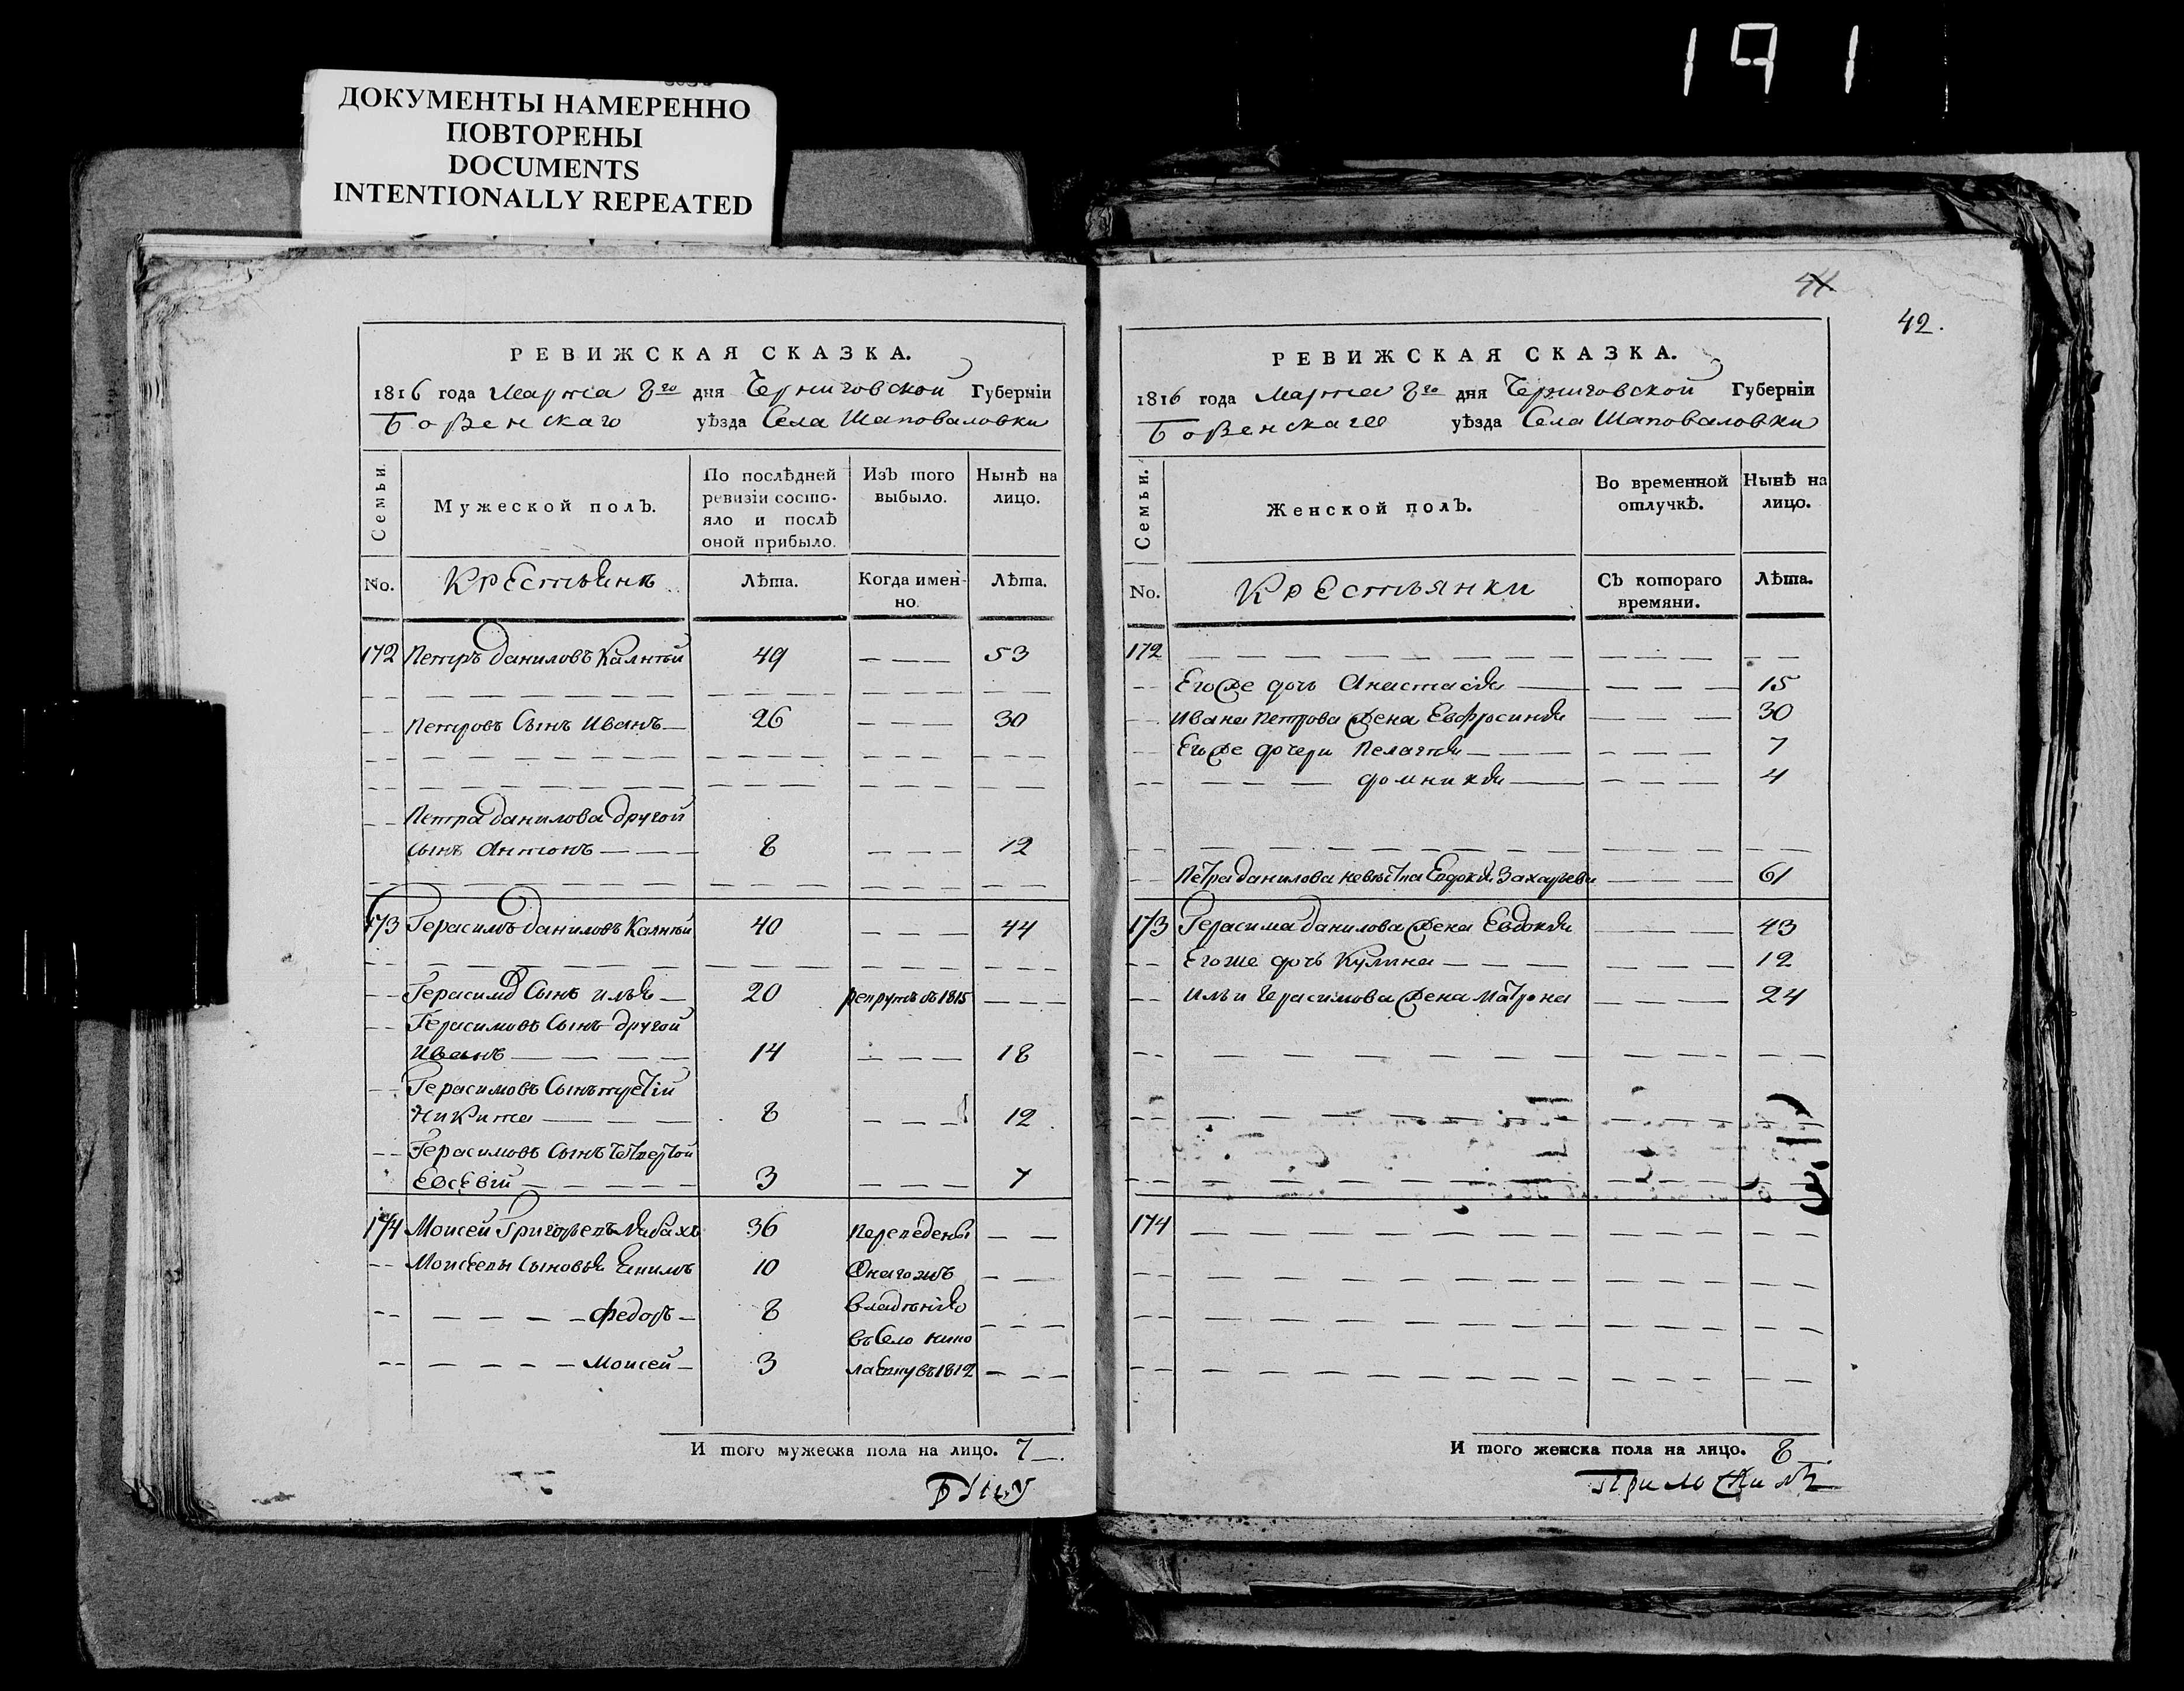 191
ДОКУМЕНТЫ НАМЕРЕННО
ПОВТОРЕНЫ
DOCUMENTS
INTENTIONALLY REPEATED
РЕВИЖСКАЯ СКАЗКА.
1816 года Марта 8го дня Черниговской Губерніи
Борзенскаго уѣзда Села Шаповаловки
Семьи.
Мужеской полъ.
По послѣдней ревизіи состо-
яло и послѣ оной прибыло.
Изъ того выбыло.
Нынѣ на лицо.
No. Крестьянъ Лѣта. Когда имен-
но. Лѣта.
172 Петръ Даниловъ 49 — — — 53
Петровъ Сынъ Иванъ 26 — — — 30
Петра Данилова другой
сынъ Антонъ — — — 8 — — — 12
173 Герасимъ Даниловъ 40 — — — 44
Герасима Сынъ Илья — 20 въ 1815 — — —
Герасимовъ Сынъ другой
Иванъ — — — — 14 — — — 18
Герасимовъ Сынъ третій
Никита — — — 8 — — — 12
Герасимовъ Сынъ четвертой
Евсевій — — — — 3 — — — 7
174 Моисей Григорьевъ 36 Переведены — —
Моисеевы Сыновья 10 Онагожъ — —
— — — — Федоръ — 8 владѣнія — — —
въ Село
— — — — Моисей — 3 въ 1812 — — —
И того мужеска пола на лицо. 7 —.
41
42.
РЕВИЖСКАЯ СКАЗКА.
1816 года Марта 8го дня Черниговской Губерніи
Борзенскаго уѣзда Села Шаповаловки
Семьи.
Женской полъ.
Во временной отлучкѣ.
Нынѣ на лицо.
No. Крестьянки Съ котораго
времяни. Лѣта.
172
Егоже дочь Анастасія — — — — 15
Ивана Петрова жена Евфросинія — — — 30
Егоже дочери Пелагія — — — — 7
— — — Домникія — — — — 4
Петра Данилова невѣстка Евдокія Захарьева — — 61
173 Герасима Данилова жена Евдокія — — — 43
Егоже дочь Кулина — — — — — — 12
Ильи Герасимова жена Матрона — — — 24
174
И того женска пола на лицо. 8
Приложилъ